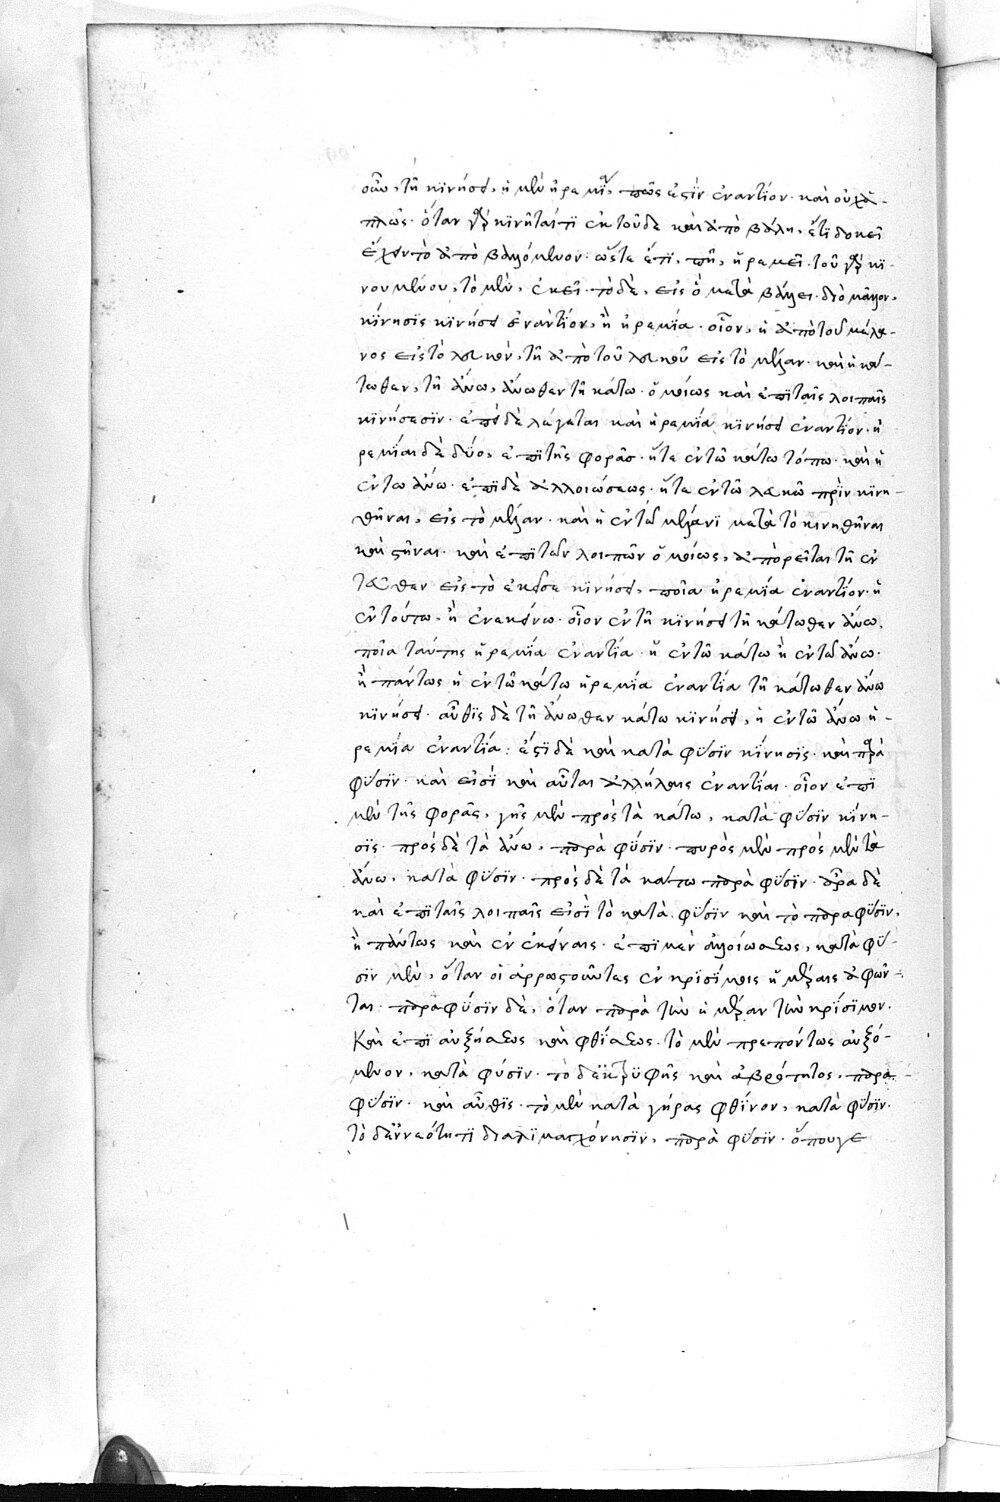 οὖν, τῇ κινήσει, ἡ μὲν ἠρεμία, πῶς ἐστὶν ἐναντίον. καὶ οὐχ ἁ-
πλῶς. ὅταν γὰρ κινῆταί τι ἐκ τοῦδε καὶ ἀποβάλη, ἔτι δοκεῖ
ἔχειν τὸ ἀποβαλλόμενον. ὥστε ἔτι, πῆ, ἠρεμεῖ. τοῦ γὰρ κι-
νουμένου, τὸ μὲν, ἐκεῖ. τὸ δὲ, εἰς ὃ μεταβάλλει. διὸ μᾶλλον,
κίνησις κινήσει ἐναντίον, ἢ ἠρεμία. οἷον, ἡ ἀπὸ τοῦ μέλα-
νος εἰς τὸ λευκὸν, τῇ ἀπὸ τοῦ λευκοῦ εἰς τὸ μέλαν. καὶ ἡ κά-
τωθεν, τῇ ἄνω, ἄνωθεν τῇ κάτω. ὁμοίως καὶ ἐπὶ ταῖς λοιπαῖς
κινήσεσιν. ἐπεὶ δὲ λέγεται καὶ ἠρεμία κινήσει ἐναντίον. ἠ-
ρεμίαι δὲ δύο, ἐπὶ τῆς φορᾶς. ἥτε ἐν τῶ κάτω τόπω. καὶ ἡ
ἐν τω ἄνω. ἐπὶ δὲ ἀλλοιώσεως. ἥτε ἐν τῶ λευκῶ πρὶν κινη-
θῆναι, εἰς τὸ μέλαν. καὶ ἡ ἐν τῶ μέλανι μετὰ τὸ κινηθῆναι
καὶ στῆναι. καὶ ἐπὶ τῶν λοιπῶν ὁμοίως, ἀπορεῖται τῇ ἐν
ταῦθεν εἰς τὸ ἐκεῖσε κινήσει, ποῖα ἠρεμία ἐναντίον. ἡ
ἐν τούτω, ἢ ἐν ἐκείνω. οἷον ἐν τῇ κινήσει τῇ κάτωθεν ἄνω,
ποῖα ταύτης ἠρεμία ἐναντία. ἡ ἐν τῶ κάτω ἢ ἐν τῶ ἄνω.
ἢ πάντως ἡ ἐν τῶ κάτω ἠρεμία ἐναντία τῇ κάτωθεν ἄνω
κινήσει. αὖθις δὲ τῇ ἄνωθεν κάτω κινήσει, ἡ ἐν τῶ ἄνω ἠ-
ρεμία ἐναντία: ἔστι δὲ καὶ κατὰ φύσιν κίνησις. καὶ παρὰ
φύσιν. καὶ εἰσὶ καὶ αὗται ἀλλήλαις ἐναντίαι. οἷον ἐπὶ
μὲν τῆς φορᾶς, γῆς μὲν πρὸς τὰ κάτω, κατὰ φύσιν κίνη-
σις. πρὸς δὲ τὰ ἄνω, παρὰ φύσιν. πυρὸς μὲν πρὸς μὲν τὰ
ἄνω, κατὰ φύσιν. πρὸς δὲ τὰ κάτω παρὰ φύσιν. ἆρα δὲ
καὶ ἐπὶ ταῖς λοιπαῖς εἰσὶ τὸ κατὰ φύσιν καὶ τὸ παραφύσιν,
ἢ πάντως καὶ ἐν ἐκείναις. ἐπὶ μὲν ἀλλοιώσεως, κατὰ φύ-
σιν μὲν, ὅταν οἱ ἀρρωστοῦντες ἐν κρισίμοις ἡμέραις ἀφῶν-
ται. παραφύσιν δὲ, ὅταν παρὰ τὴν ἡμέραν τὴν κρίσιμον.
Καὶ ἐπὶ αὐξήσεως καὶ φθίσεως. τὸ μὲν πρεπόντως αὐξό-
μενον, κατὰ φύσιν. τὸ δὲ ἐκ τρυφῆς καὶ ἁβρότητος, παρὰ
φύσιν. καὶ αὖθις. τὸ μὲν κατὰ γῆρας φθίνον, κατὰ φύσιν.
τὸ δὲ ἐν νεότητι διὰ λιμαγχόνησιν, παρὰ φύσιν. ὅπου γε